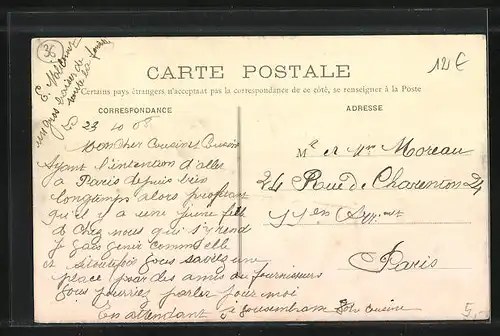 36
E. Molénat
un gros baiser de
toute la famille
12 €
CARTE POSTALE
Certains pays étrangers n'acceptant pas la correspondance de ce côté, se renseigner à la Poste
CORRESPONDANCE
ADRESSE
23 10 08
Mon Cher Cousines Cousin
Ayant l'intention d'aller
a Paris depuis bien
longtemps alors profitant
qu'il y a une jeune fille
de chez nous qui s'y rend
je fais venir comme elle
et si vous savies une
place pour des amis ou fournisseurs
vous pourriez parler pour moi
En attendant votre cousine
Mr et Mme Moreau
24 Rue de Charenton 24
Paris